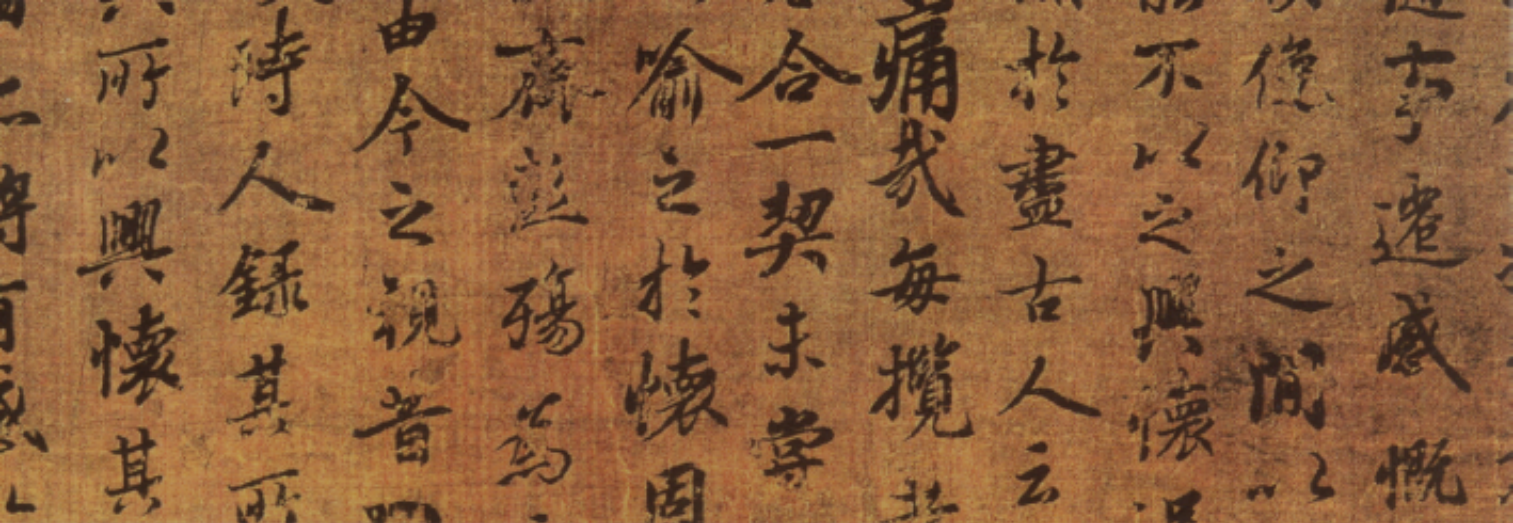 事遷感慨
俛仰之閒以
不以之興懷
於盡古人云
痛哉每攬
合一契未嘗
喻之於懷固
齊彭殤為
由今之視昔
時人錄其所
所以興懷其